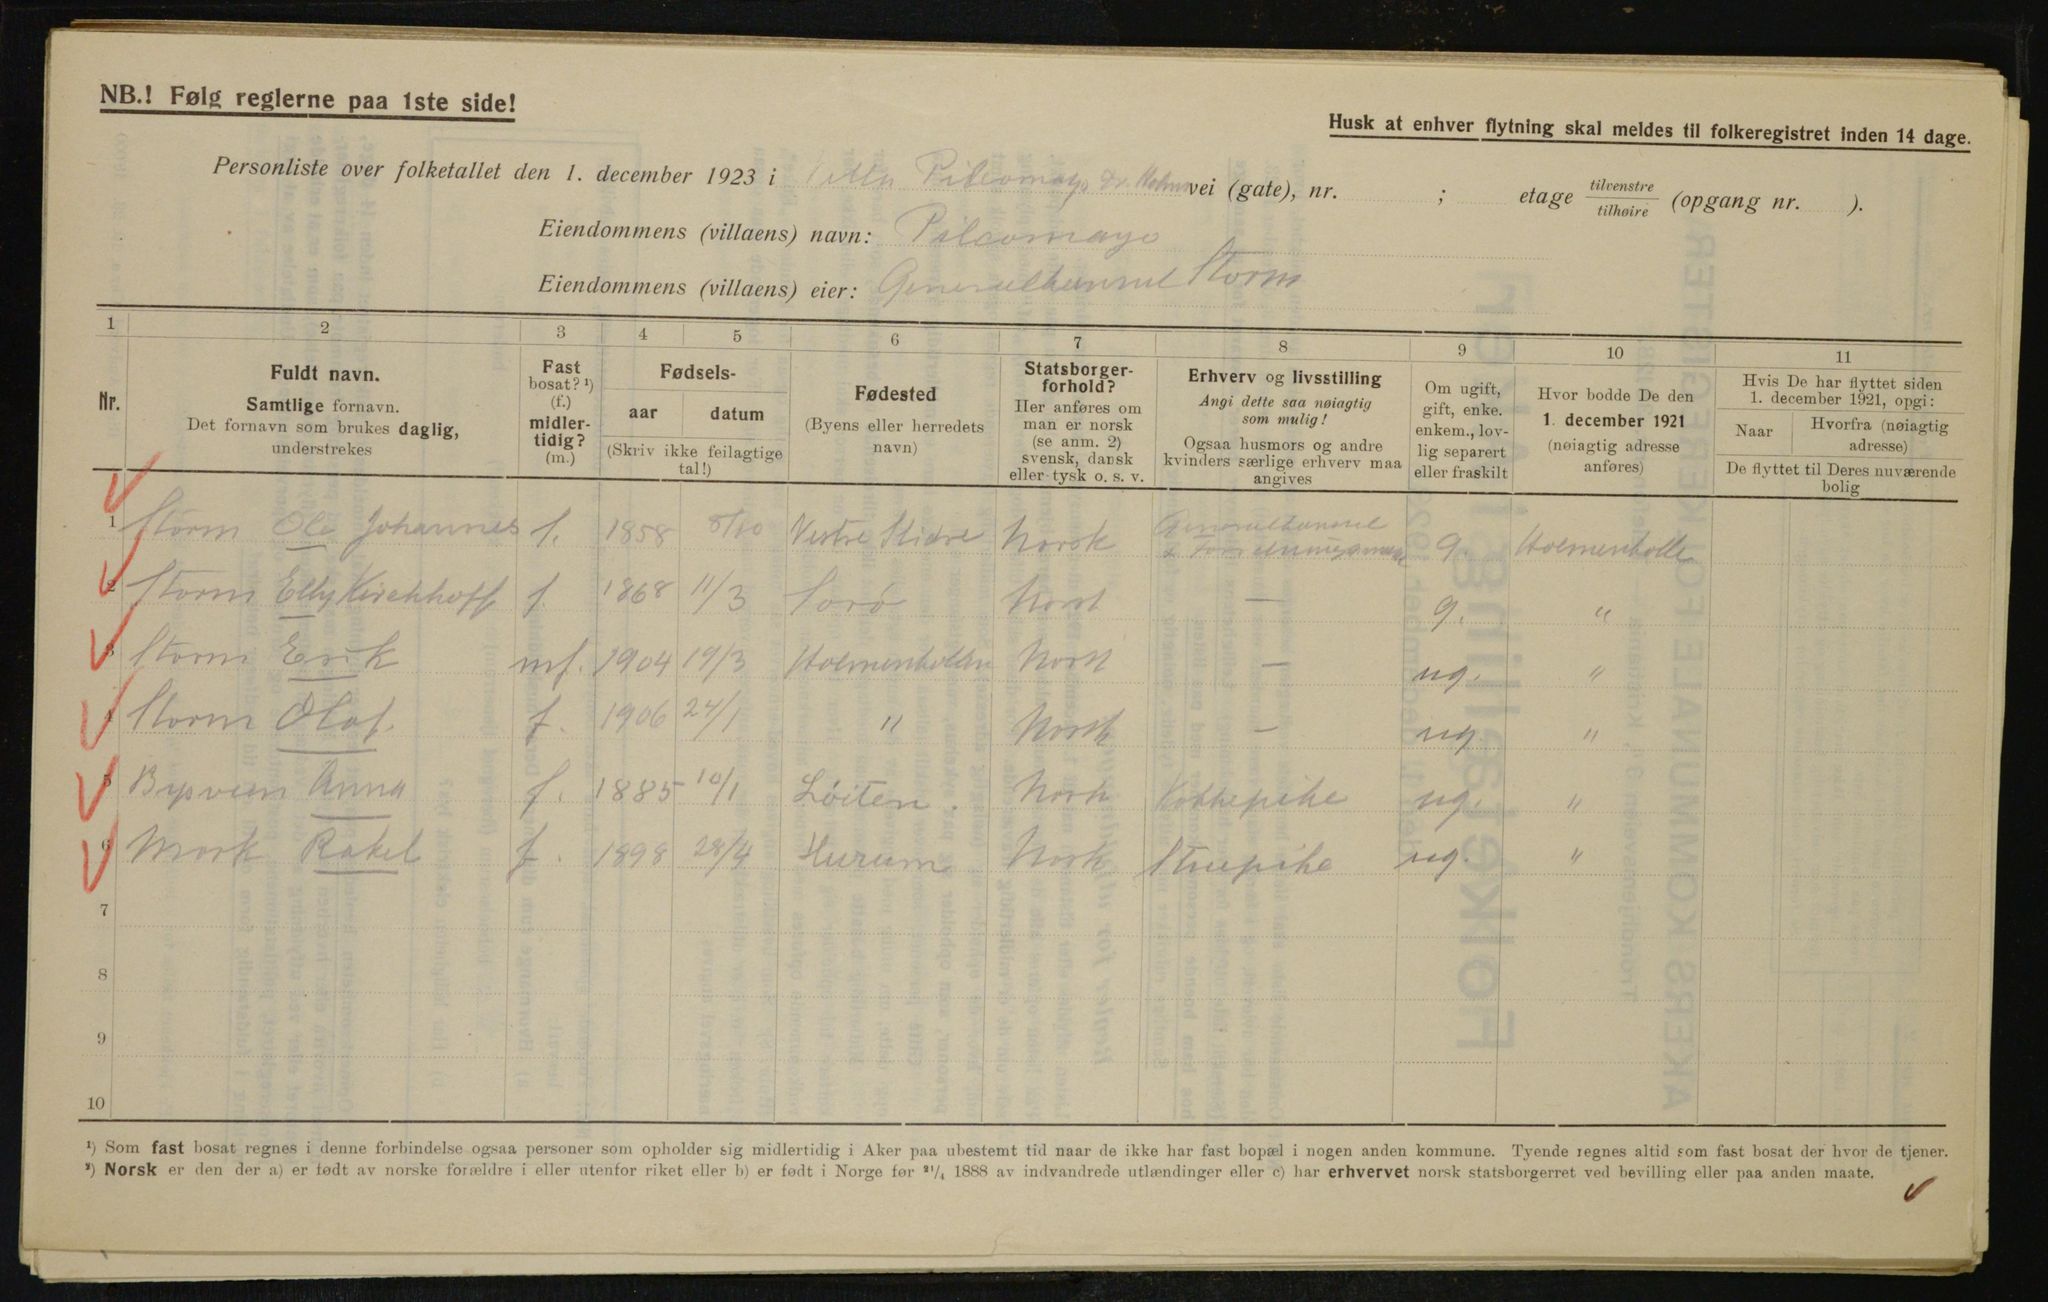 NB.! Følg reglerne paa 1ste side!
Husk at enhver flytning skal meldes til folkeregistret inden 14 dage.
Personliste over folketallet den 1. december 1923 i Villa Pilcomayo Dr. Holms vei (gate), nr. ; etage tilvenstre / tilhøire (opgang nr. ).
Eiendommens (villaens) navn: Pilcomayo
Eiendommens (villaens) eier: Generalkonsul Storm
1 2 3 4 5 6 7 8 9 10 11
Nr.
Fuldt navn.
Samtlige fornavn.
Det fornavn som brukes daglig,
understrekes
Fast
bosat? ¹)
(f.)
midler-
tidig?
(m.)
Fødsels-
aar datum
(Skriv ikke feilagtige
tal!)
Fødested
(Byens eller herredets
navn)
Statsborger-
forhold?
Her anføres om
man er norsk
(se anm. 2)
svensk, dansk
eller tysk o. s. v.
Erhverv og livsstilling
Angi dette saa nøiagtig
som mulig!
Ogsaa husmors og andre
kvinders særlige erhverv maa
angives
Om ugift,
gift, enke.
enkem., lov-
lig separert
eller fraskilt
Hvor bodde De den
1. december 1921
(nøiagtig adresse
anføres)
Hvis De har flyttet siden
1. december 1921, opgi:
Naar Hvorfra (nøiagtig
adresse)
De flyttet til Deres nuværende
bolig
1 Storm Ole Johannes f. 1858 8/10 Vestre Slidre Norsk Generalkonsul & g. Holmenkollen
2 Storm Elly Kirchhoff f. 1868 11/3 Sorø Norsk — g. "
3 Storm Erik mf. 1904 19/3 Holmenkollen Norsk — ug. "
4 Storm Olaf. f. 1906 24/1 " Norsk — ug. "
5 Byveien Anna f. 1885 10/1 Løiten. Norsk Kokkepike ug. "
6 Mork Rakel f. 1898 28/4 Hurum Norsk Stuepike ug. "
7
8
9
10
¹) Som fast bosat regnes i denne forbindelse ogsaa personer som opholder sig midlertidig i Aker paa ubestemt tid naar de ikke har fast bopæl i nogen anden kommune. Tyende regnes altid som fast bosat der hvor de tjener.
²) Norsk er den der a) er født av norske forældre i eller utenfor riket eller b) er født i Norge før ²¹/₄ 1888 av indvandrede utlændinger eller c) har erhvervet norsk statsborgerret ved bevilling eller paa anden maate.